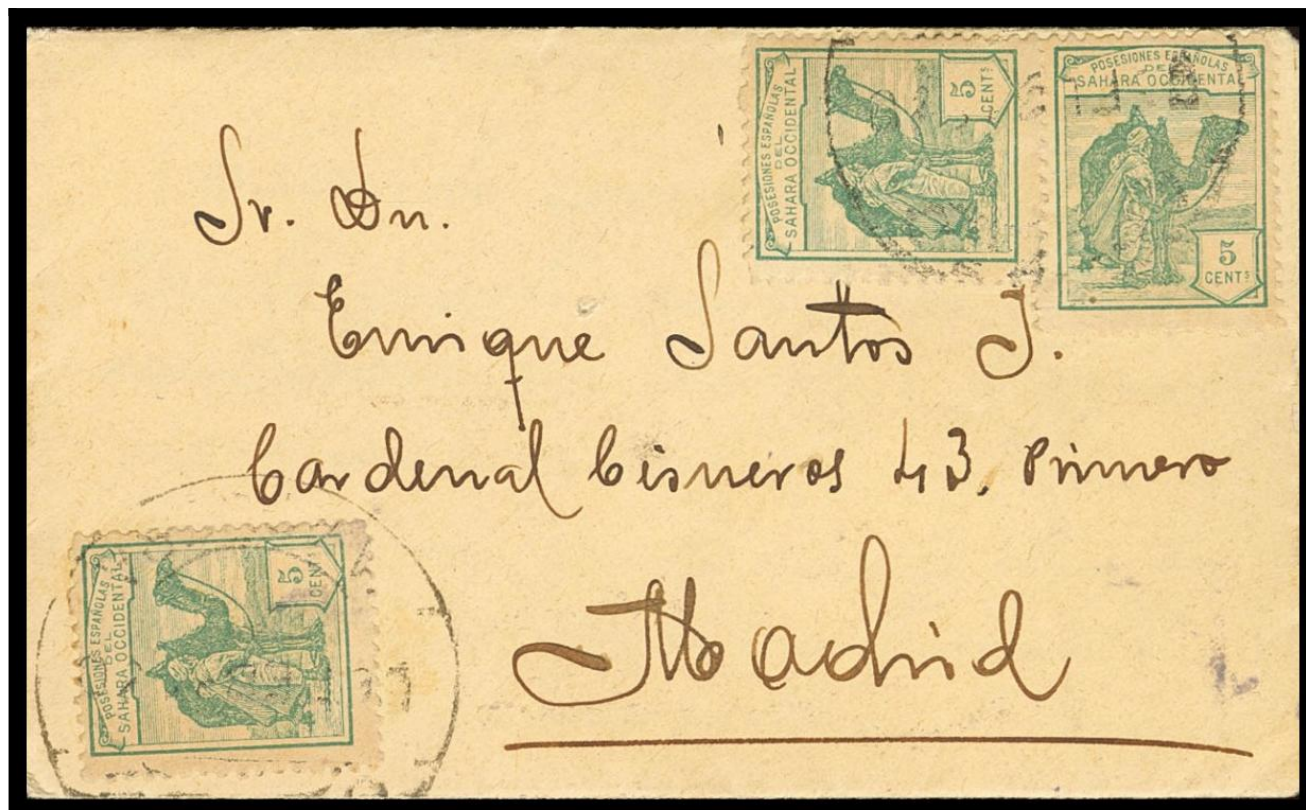 POSESIONES ESPAÑOLAS
DEL
SAHARA OCCIDENTAL
5
CENTS
POSESIONES ESPAÑOLAS
DEL
SAHARA OCCIDENTAL
5
CENTS
Sr. Dn.
Enrique Santos J.
Cardenal Cisneros 43. Primero
Madrid
POSESIONES ESPAÑOLAS
DEL
SAHARA OCCIDENTAL
5
CENT